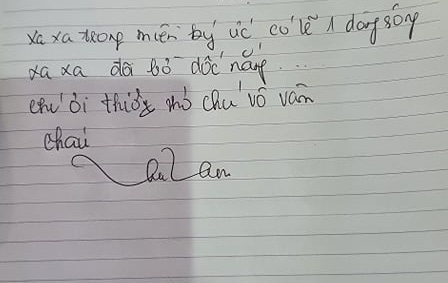 xa xa trong miền ký ức có lẽ 1 dòng sông
xa xa đồi bờ dốc nắng...
chư ơi thuở nhỏ chư vô vàn
chau
Lan